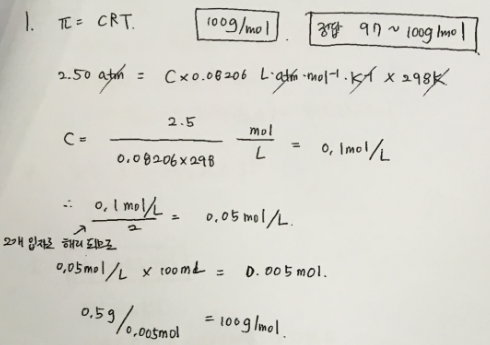 1. π = CRT. 100g/mol . 정답 97 ~ 100g/mol
2.50 atm = C×0.08206 L·atm·mol⁻¹·K⁻¹ × 298K
C = 2.5 / 0.08206×298 mol / L = 0,1mol/L
∴ 0,1mol/L / 2 = 0,05mol/L.
2개 입자로 해리 되므로
0,05mol/L × 100mL = 0.005mol.
0.5g/0,005mol = 100g/mol.